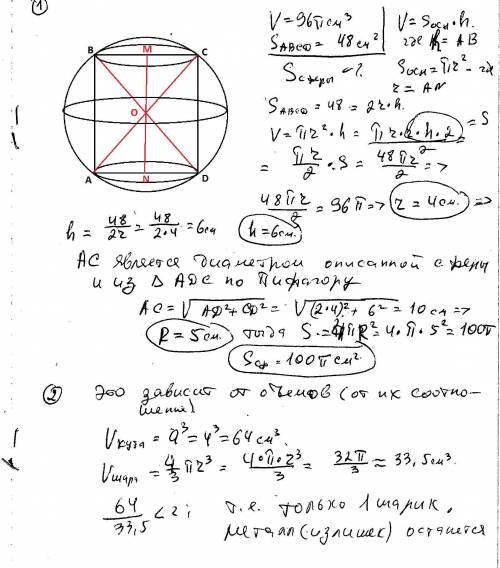 ①
B M C
O
A N D
V = 96π см³
S_ABCD = 48 см²
S сферы = ?
V = Sосн·h.
где h = AB
Sосн = πr² - где
r = AN
S_ABCD = 48 = 2r·h.
V = πr²·h = πr·r·h·2/2 = S
= πr/2 · S = 48πr/2 =>
48πr/2 = 96π => r = 4см. =>
h = 48/2r = 48/2·4 = 6см h = 6см.
AC является диаметром описанной сферы
и из Δ ADC по Пифагору
AC = √AD²+CD² = √(2·4)²+6² = 10 см =>
R = 5см. тогда S = 4πR² = 4·π·5² = 100π
Sсф = 100π см².
② Это зависит от объемов (от их соотно-
шения)
Vкуба = a³ = 4³ = 64 см³.
Vшара = 4/3 πr³ = 4·π·2³/3 = 32π/3 ≈ 33,5 см³.
64/33,5 < 2; т.е. только 1 шарик,
металл (излишек) останется